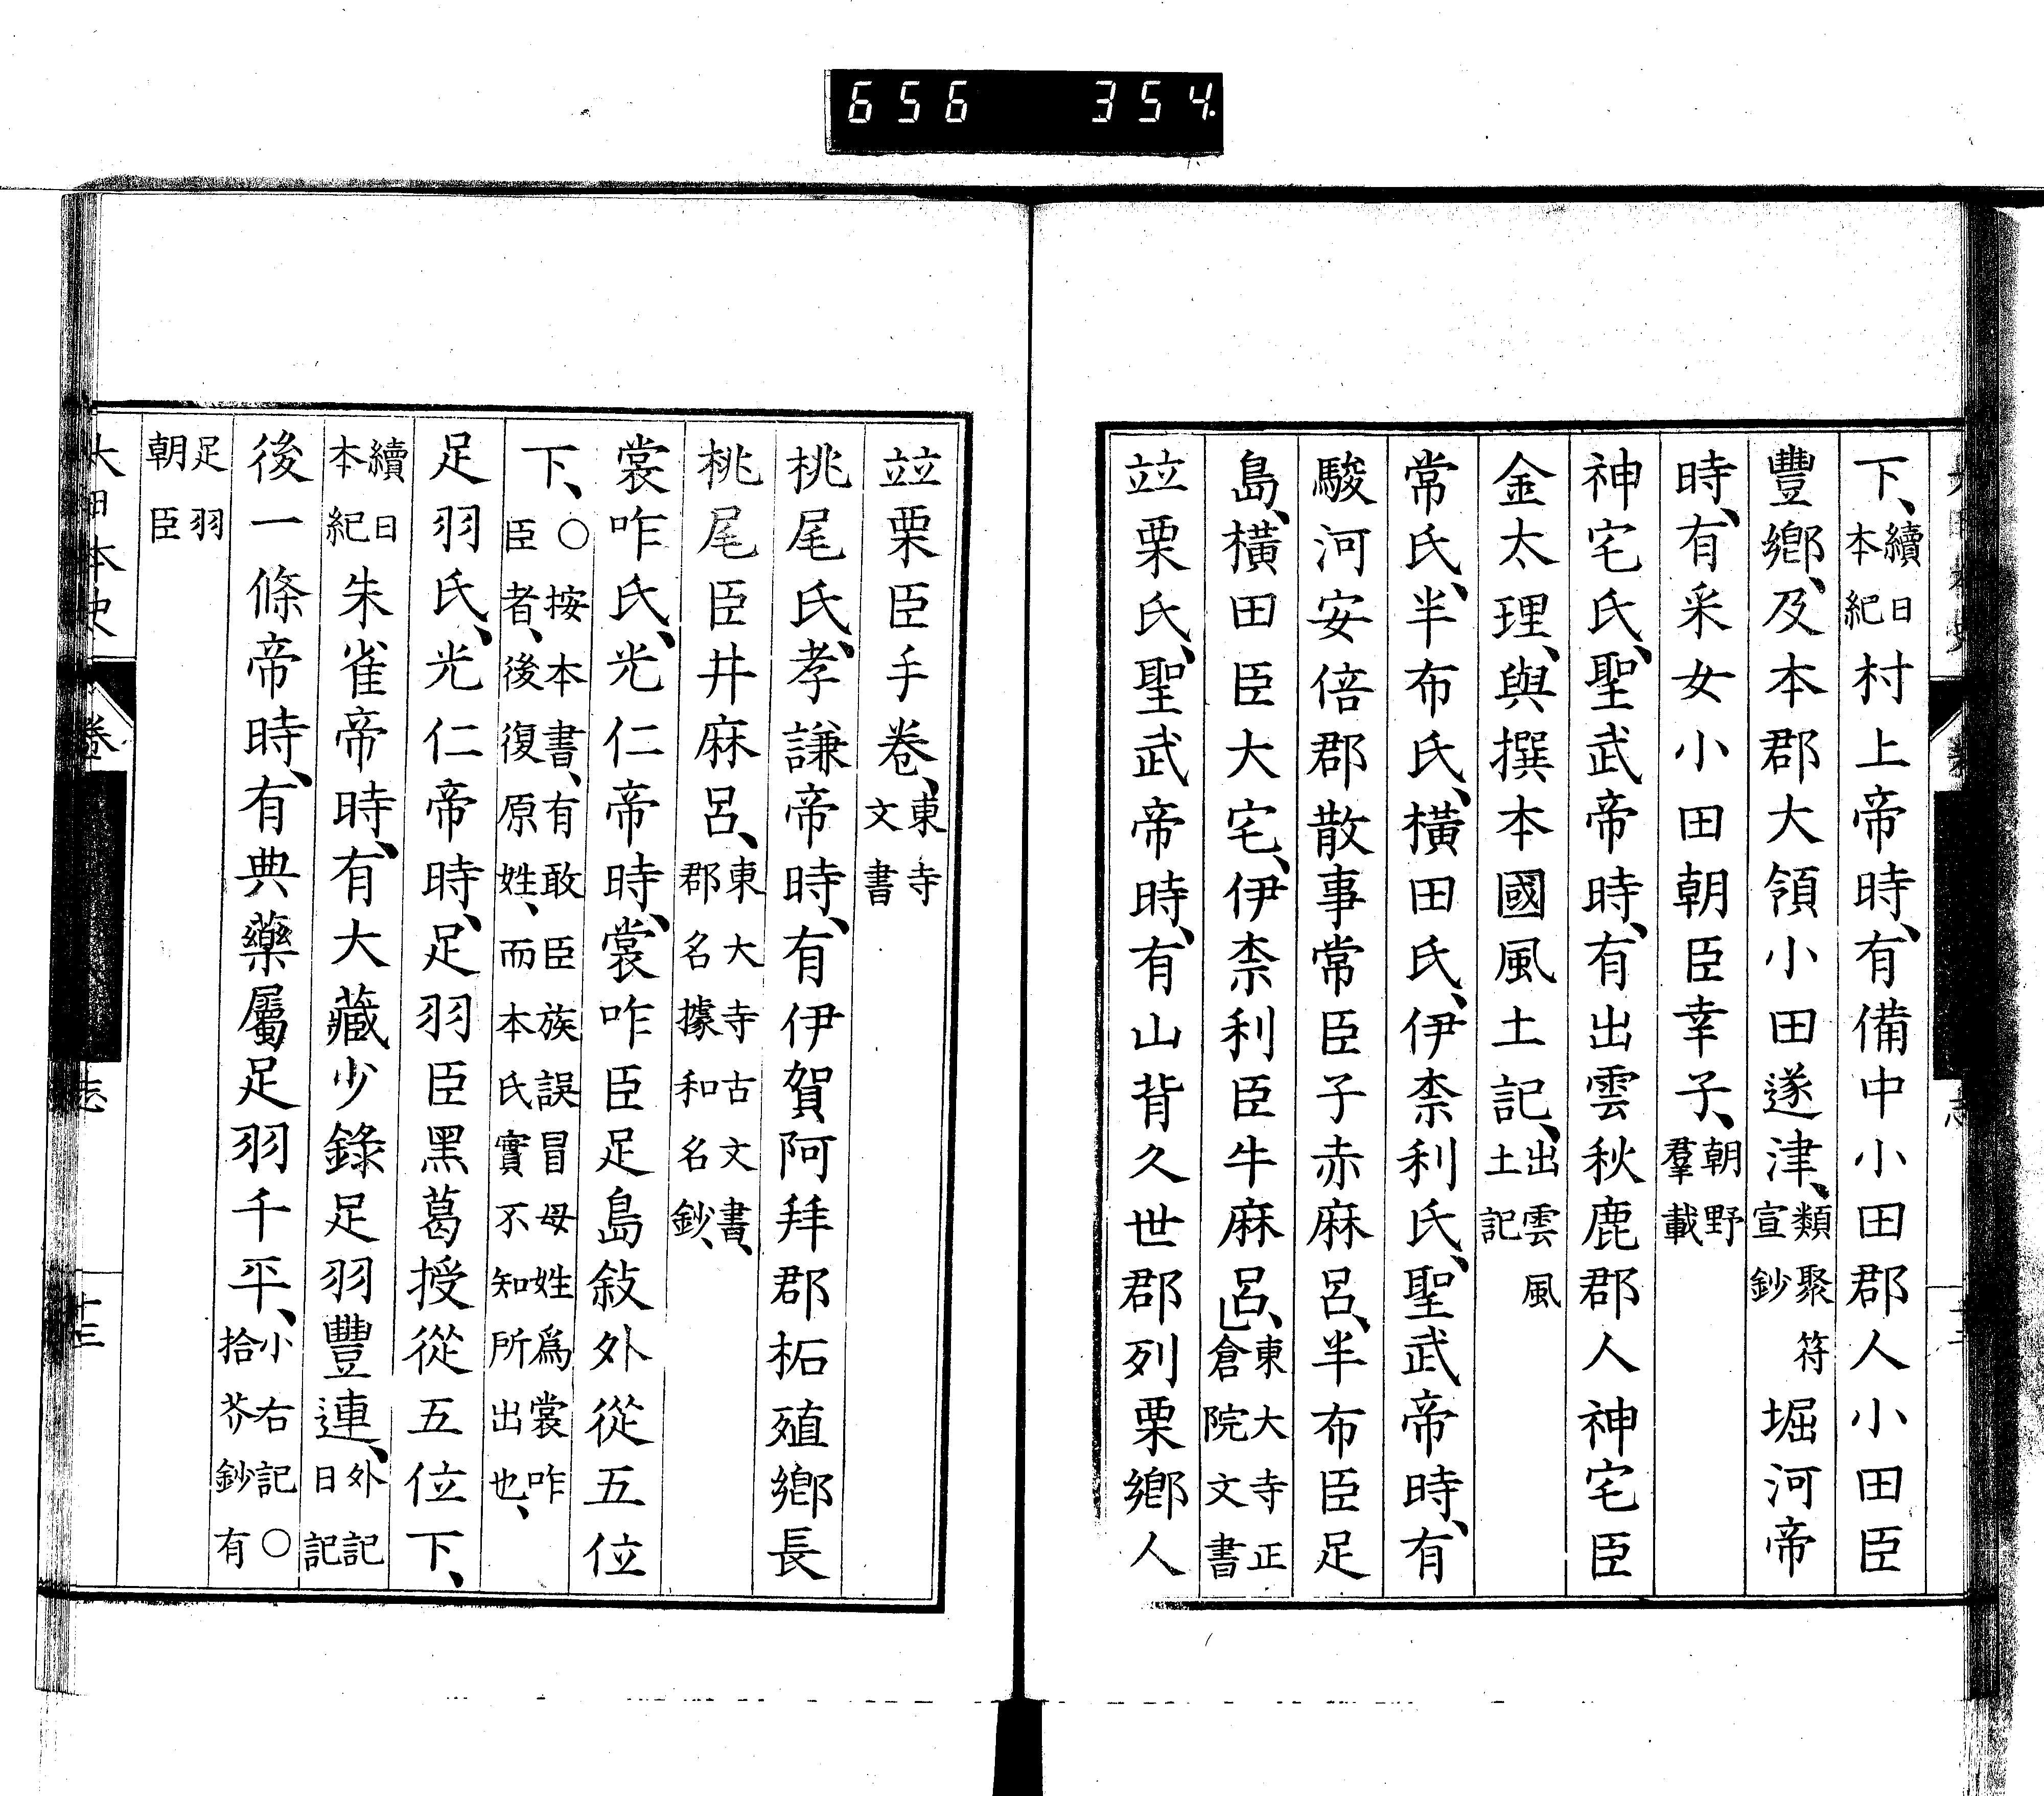 656 354.
下、續日本紀村上帝時、有備中小田郡人小田臣
豐鄉、及本郡大領小田遂津、類聚符宣鈔堀河帝
時、有采女小田朝臣幸子、朝野羣載
神宅氏、聖武帝時、有出雲秋鹿郡人神宅臣
金太理、與撰本國風土記、出雲風土記
常氏、半布氏、橫田氏、伊柰利氏、聖武帝時、有
駿河安倍郡散事常臣子赤麻呂、半布臣足
島、橫田臣大宅、伊柰利臣牛麻呂、東大寺正倉院文書
竝栗氏、聖武帝時、有山背久世郡列栗鄉人
竝栗臣手卷、東寺文書
桃尾氏、孝謙帝時、有伊賀阿拜郡柘殖鄉長
桃尾臣井麻呂、東大寺古文書、郡名據和名鈔、
裳咋氏、光仁帝時、裳咋臣足島敍外從五位
下、○按本書、有敢臣族誤冒母姓爲裳咋臣者、後復原姓、而本氏實不知所出也、
足羽氏、光仁帝時、足羽臣黑葛授從五位下、
續日本紀朱雀帝時、有大藏少錄足羽豐連、外記日記
後一條帝時、有典藥屬足羽千平、小右記○拾芥鈔有
足羽朝臣
大日本史 卷 志 十三